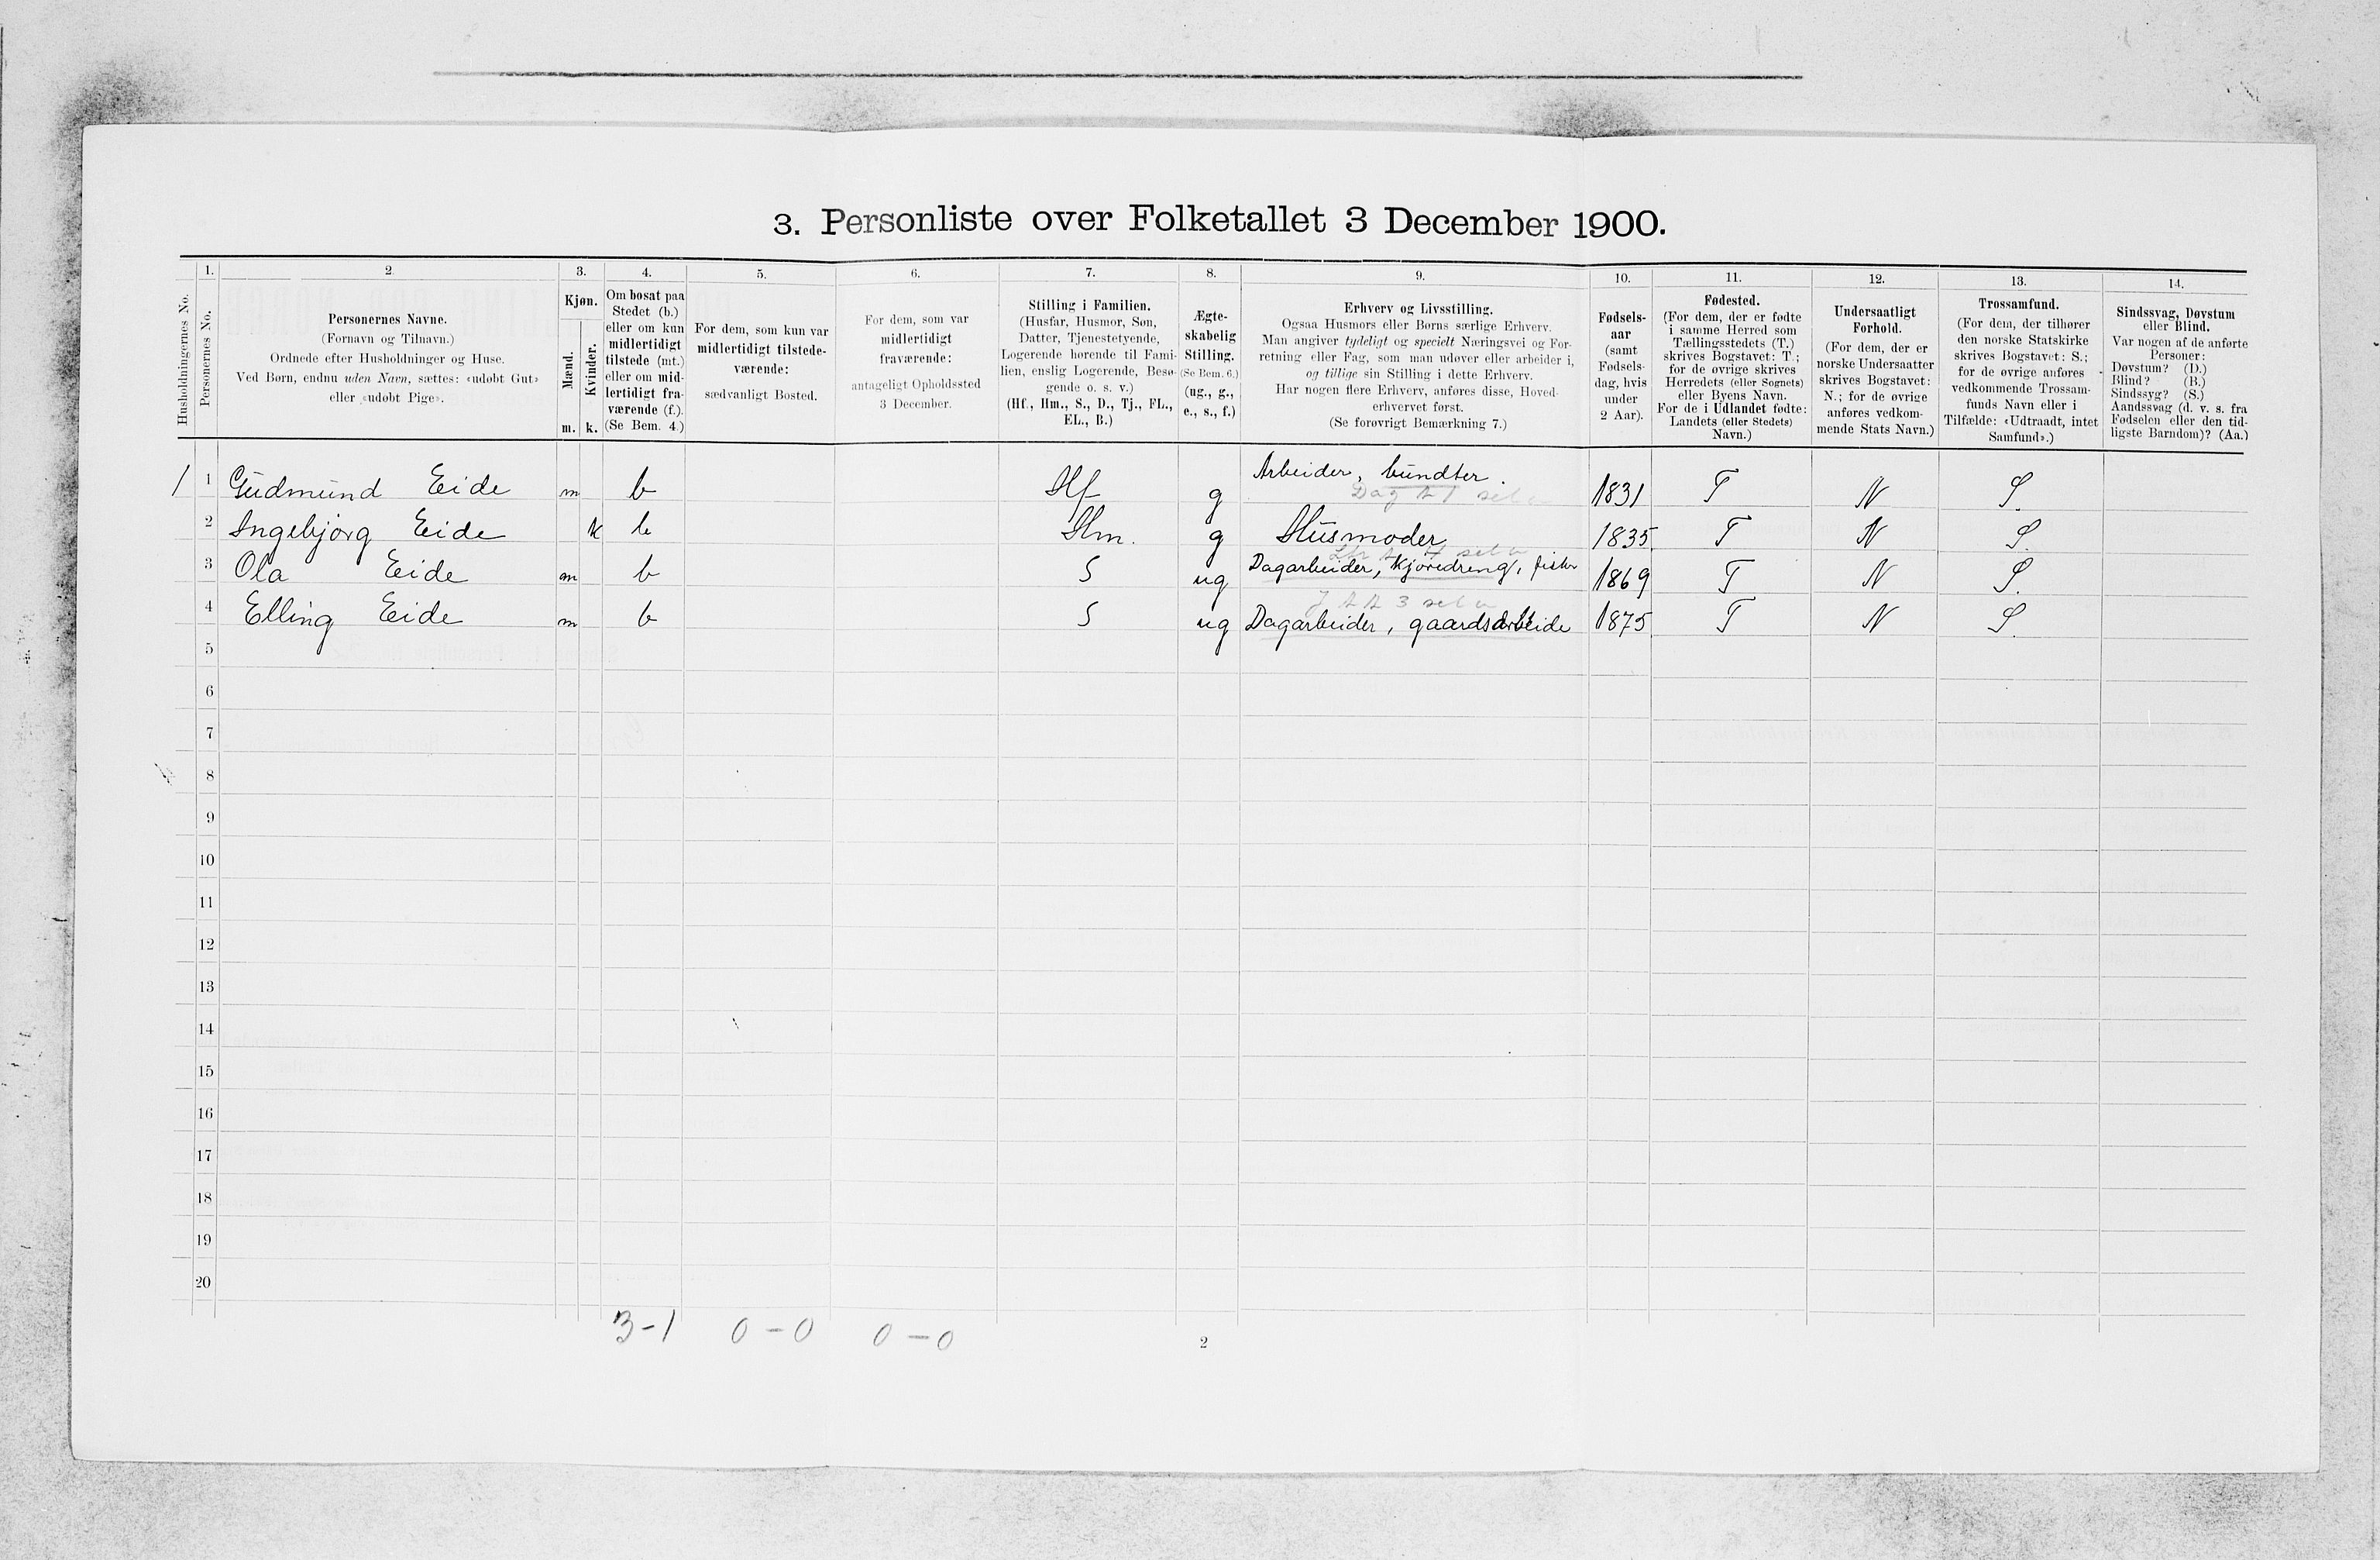 3. Personliste over Folketallet 3 December 1900.
Husholdningernes No.
1.
Personernes No.
2.
Personernes Navne.
(Fornavn og Tilnavn.)
Ordnede efter Husholdninger og Huse.
Ved Børn, endnu uden Navn, sættes: «udøbt Gut»
eller «udøbt Pige».
3.
Kjøn.
Mænd.
Kvinder.
m. k.
4.
Om bosat paa
Stedet (b.)
eller om kun
midlertidigt
tilstede (mt.)
eller om mid-
lertidigt fra-
værende (f.).
(Se Bem. 4.)
5.
For dem, som kun var
midlertidigt tilstede-
værende:
sædvanligt Bosted.
6.
For dem, som var
midlertidigt
fraværende:
antageligt Opholdssted
3 December.
7.
Stilling i Familien.
(Husfar, Husmor, Søn,
Datter, Tjenestetyende,
Logerende hørende til Fami-
lien, enslig Logerende, Besø-
gende o. s. v.)
(Hf., Hm., S., D., Tj., FL.,
EL., B.)
8.
Ægte-
skabelig
Stilling.
(Se Bem. 6.)
(ug., g.,
e., s., f.)
9.
Erhverv og Livsstilling.
Ogsaa Husmors eller Børns særlige Erhverv.
Man angiver tydeligt og specielt Næringsvei og For-
retning eller Fag, som man udøver eller arbeider i,
og tillige sin Stilling i dette Erhverv.
Har nogen flere Erhverv, anføres disse, Hoved-
erhvervet først.
(Se forøvrigt Bemærkning 7.)
10.
Fødsels-
aar
(samt
Fødsels-
dag, hvis
under
2 Aar).
11.
Fødested.
(For dem, der er fødte
i samme Herred som
Tællingsstedets (T.)
skrives Bogstavet: T.;
for de øvrige skrives
Herredets (eller Sognets)
eller Byens Navn.
For de i Udlandet fødte:
Landets (eller Stedets)
Navn.)
12.
Undersaatligt
Forhold.
(For dem, der er
norske Undersaatter
skrives Bogstavet:
N.; for de øvrige
anføres vedkom-
mende Stats Navn.)
13.
Trossamfund.
(For dem, der tilhører
den norske Statskirke
skrives Bogstavet: S.;
for de øvrige anføres
vedkommende Trossam-
funds Navn eller i
Tilfælde: «Udtraadt, intet
Samfund».)
14.
Sindssvag, Døvstum
eller Blind.
Var nogen af de anførte
Personer:
Døvstum? (D.)
Blind? (B.)
Sindssyg? (S.)
Aandssvag (d. v. s. fra
Fødselen eller den tid-
ligste Barndom)? (Aa.)
1 1 Gudmund Eide m b Hf g Arbeider, bundter. 1831 T N S.
2 Ingebjørg Eide k b Hm. g Husmoder 1835 T N S.
3 Ola Eide m b S ug Dagarbeider, kjøredreng, fisker 1869 T N S.
4 Elling Eide m b S ug Dagarbeider, gaardsarbeide 1875 T N S.
5
6
7
8
9
10
11
12
13
14
15
16
17
18
19
20
3-1 0-0 0-0
2